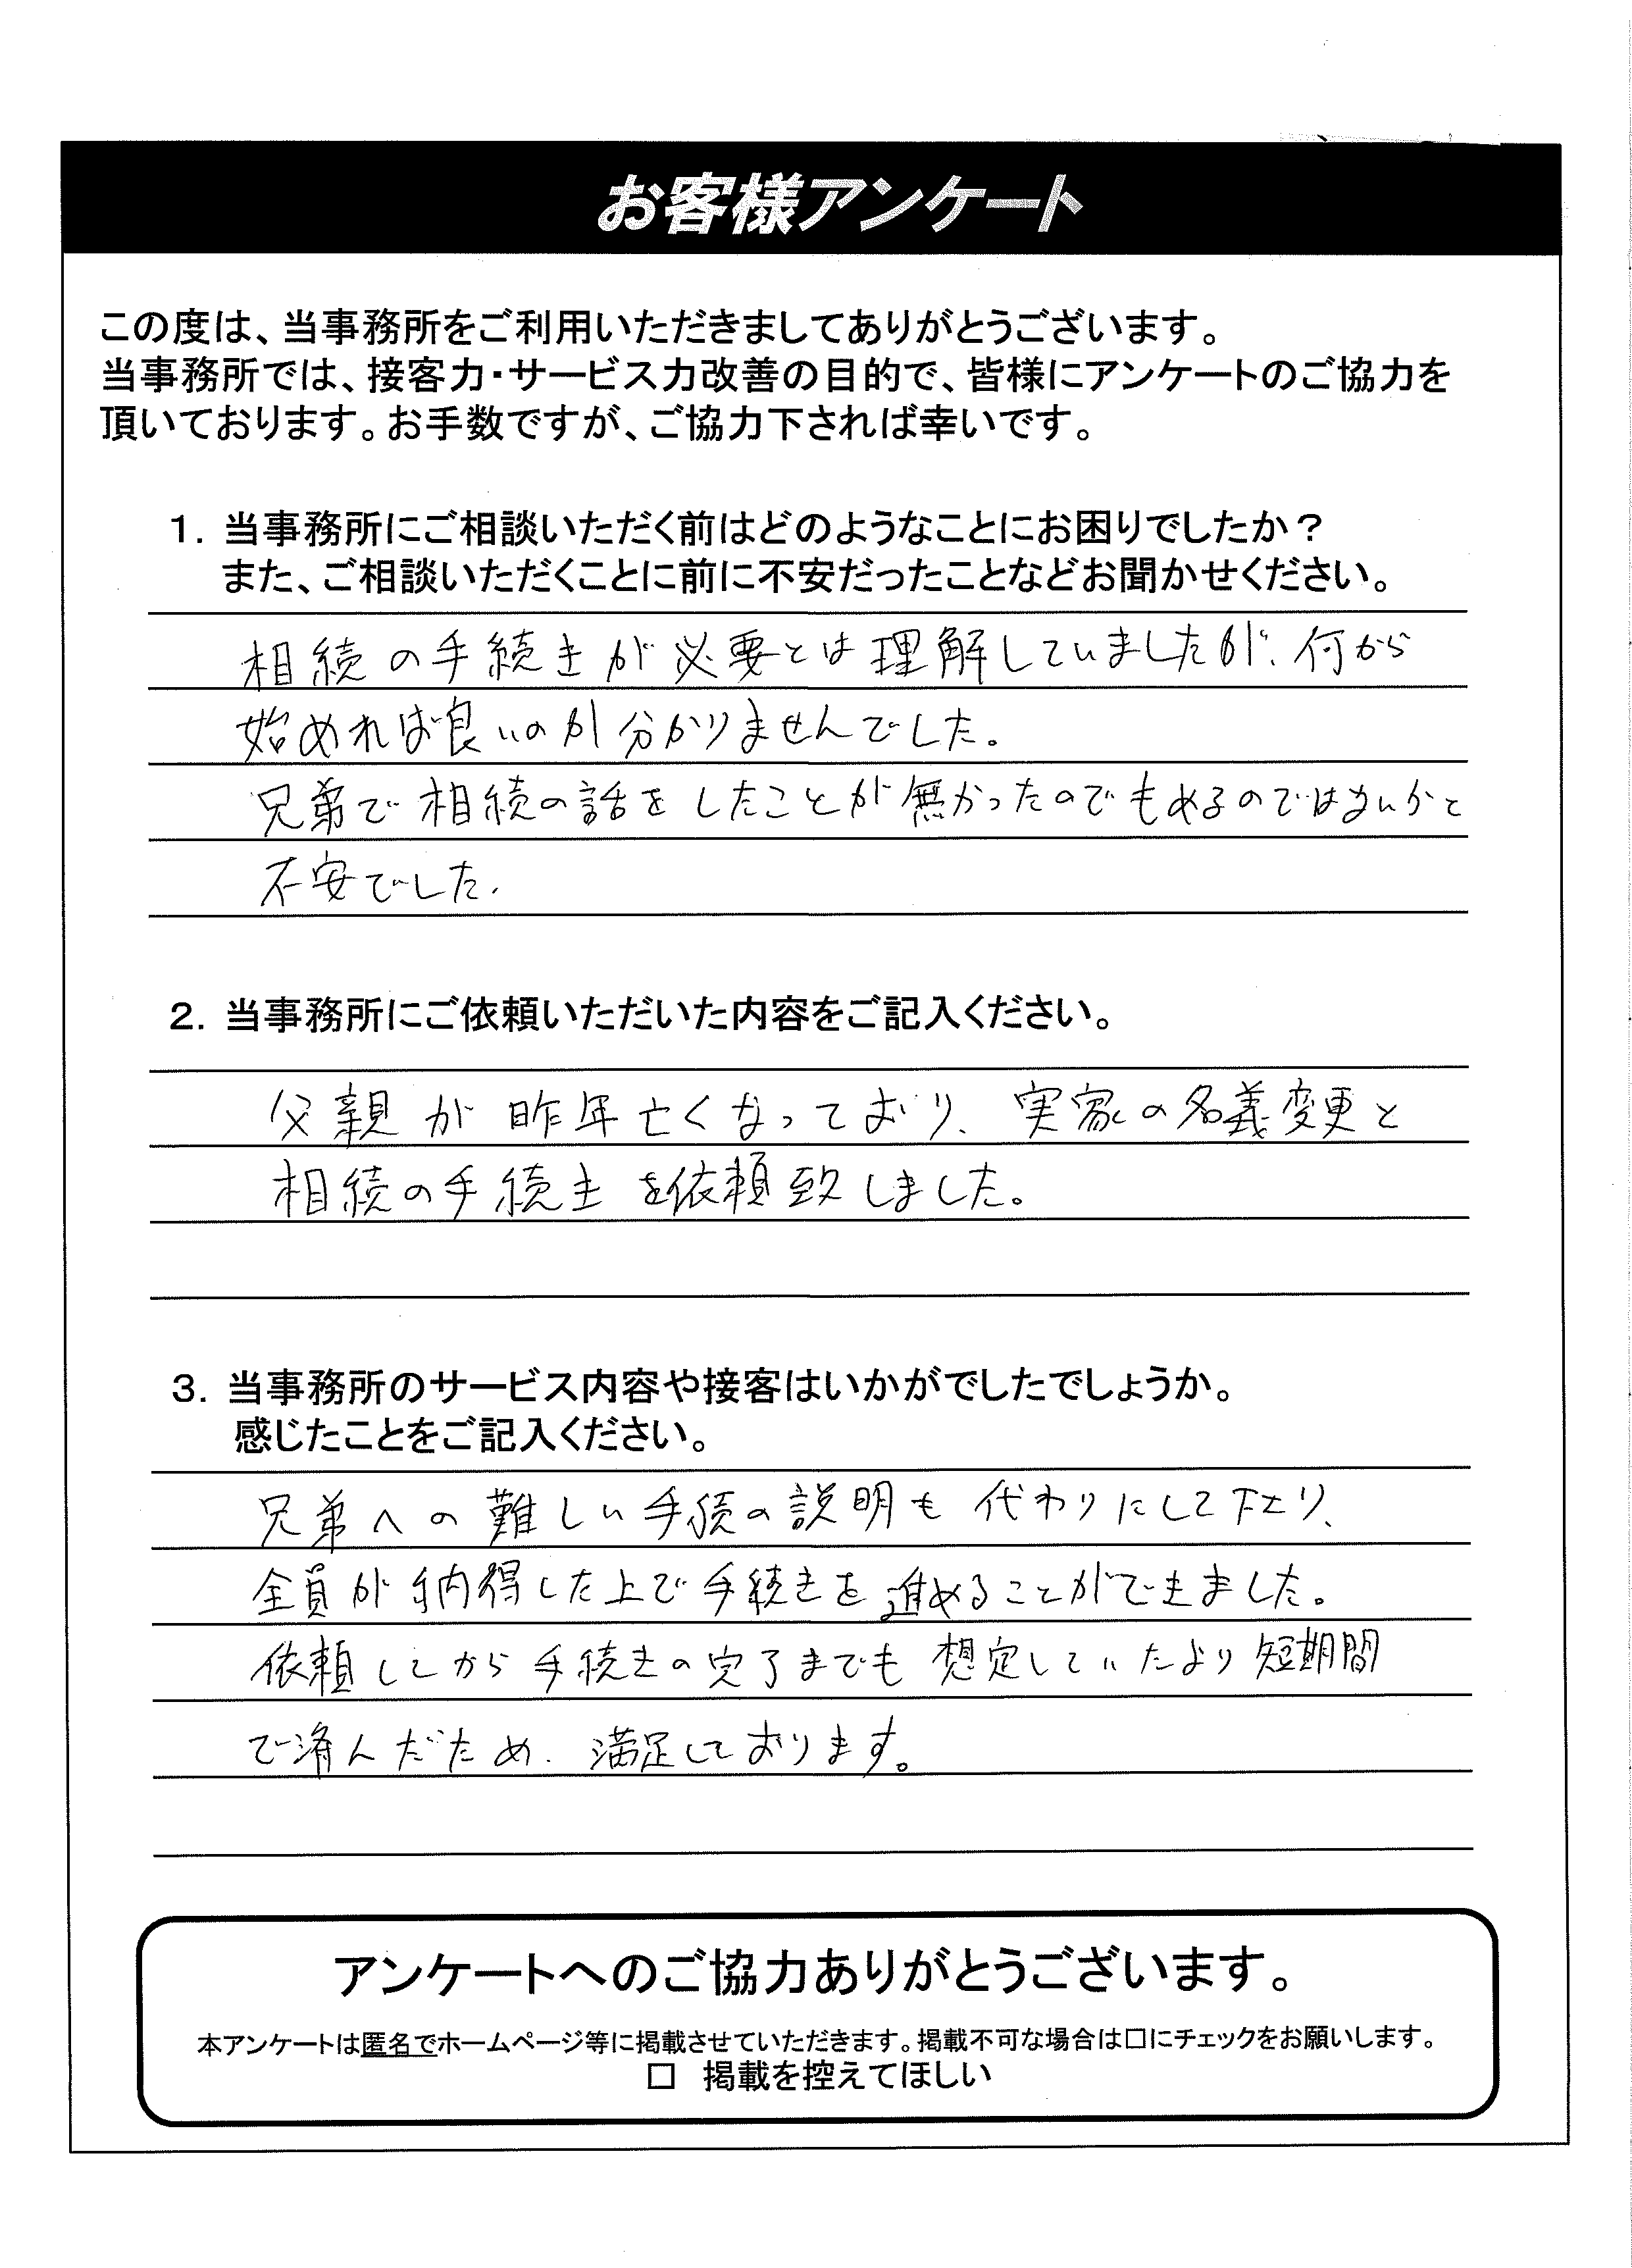 お客様アンケート
この度は、当事務所をご利用いただきましてありがとうございます。
当事務所では、接客力・サービス力改善の目的で、皆様にアンケートのご協力を
頂いております。お手数ですが、ご協力下されば幸いです。
1. 当事務所にご相談いただく前はどのようなことにお困りでしたか？
また、ご相談いただくことに前に不安だったことなどお聞かせください。
相続の手続きが必要とは理解していましたが、何から
始めれば良いのか分かりませんでした。
兄弟で相続の話をしたことが無かったのでもめるのではないかと
不安でした。
2. 当事務所にご依頼いただいた内容をご記入ください。
父親が昨年亡くなっており、実家の名義変更と
相続の手続きを依頼致しました。
3. 当事務所のサービス内容や接客はいかがでしたでしょうか。
感じたことをご記入ください。
兄弟への難しい手続の説明も代わりにして下さり、
全員が納得した上で手続きを進めることができました。
依頼してから手続きの完了までも想定していたより短期間
で済んだため、満足しております。
アンケートへのご協力ありがとうございます。
本アンケートは匿名でホームページ等に掲載させていただきます。掲載不可な場合は□にチェックをお願いします。
□ 掲載を控えてほしい